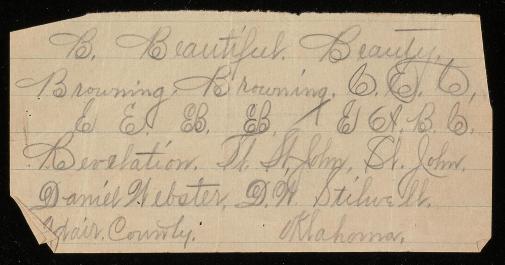 B. Beautiful. Beauty.,
Browning. Browning. C. E. C,
E E. EB. EB. E A. B. C.
Revelation. St. St. John, St. John.
Daniel Webster, D. W. Stilwell.
Adair. County. Oklahoma.